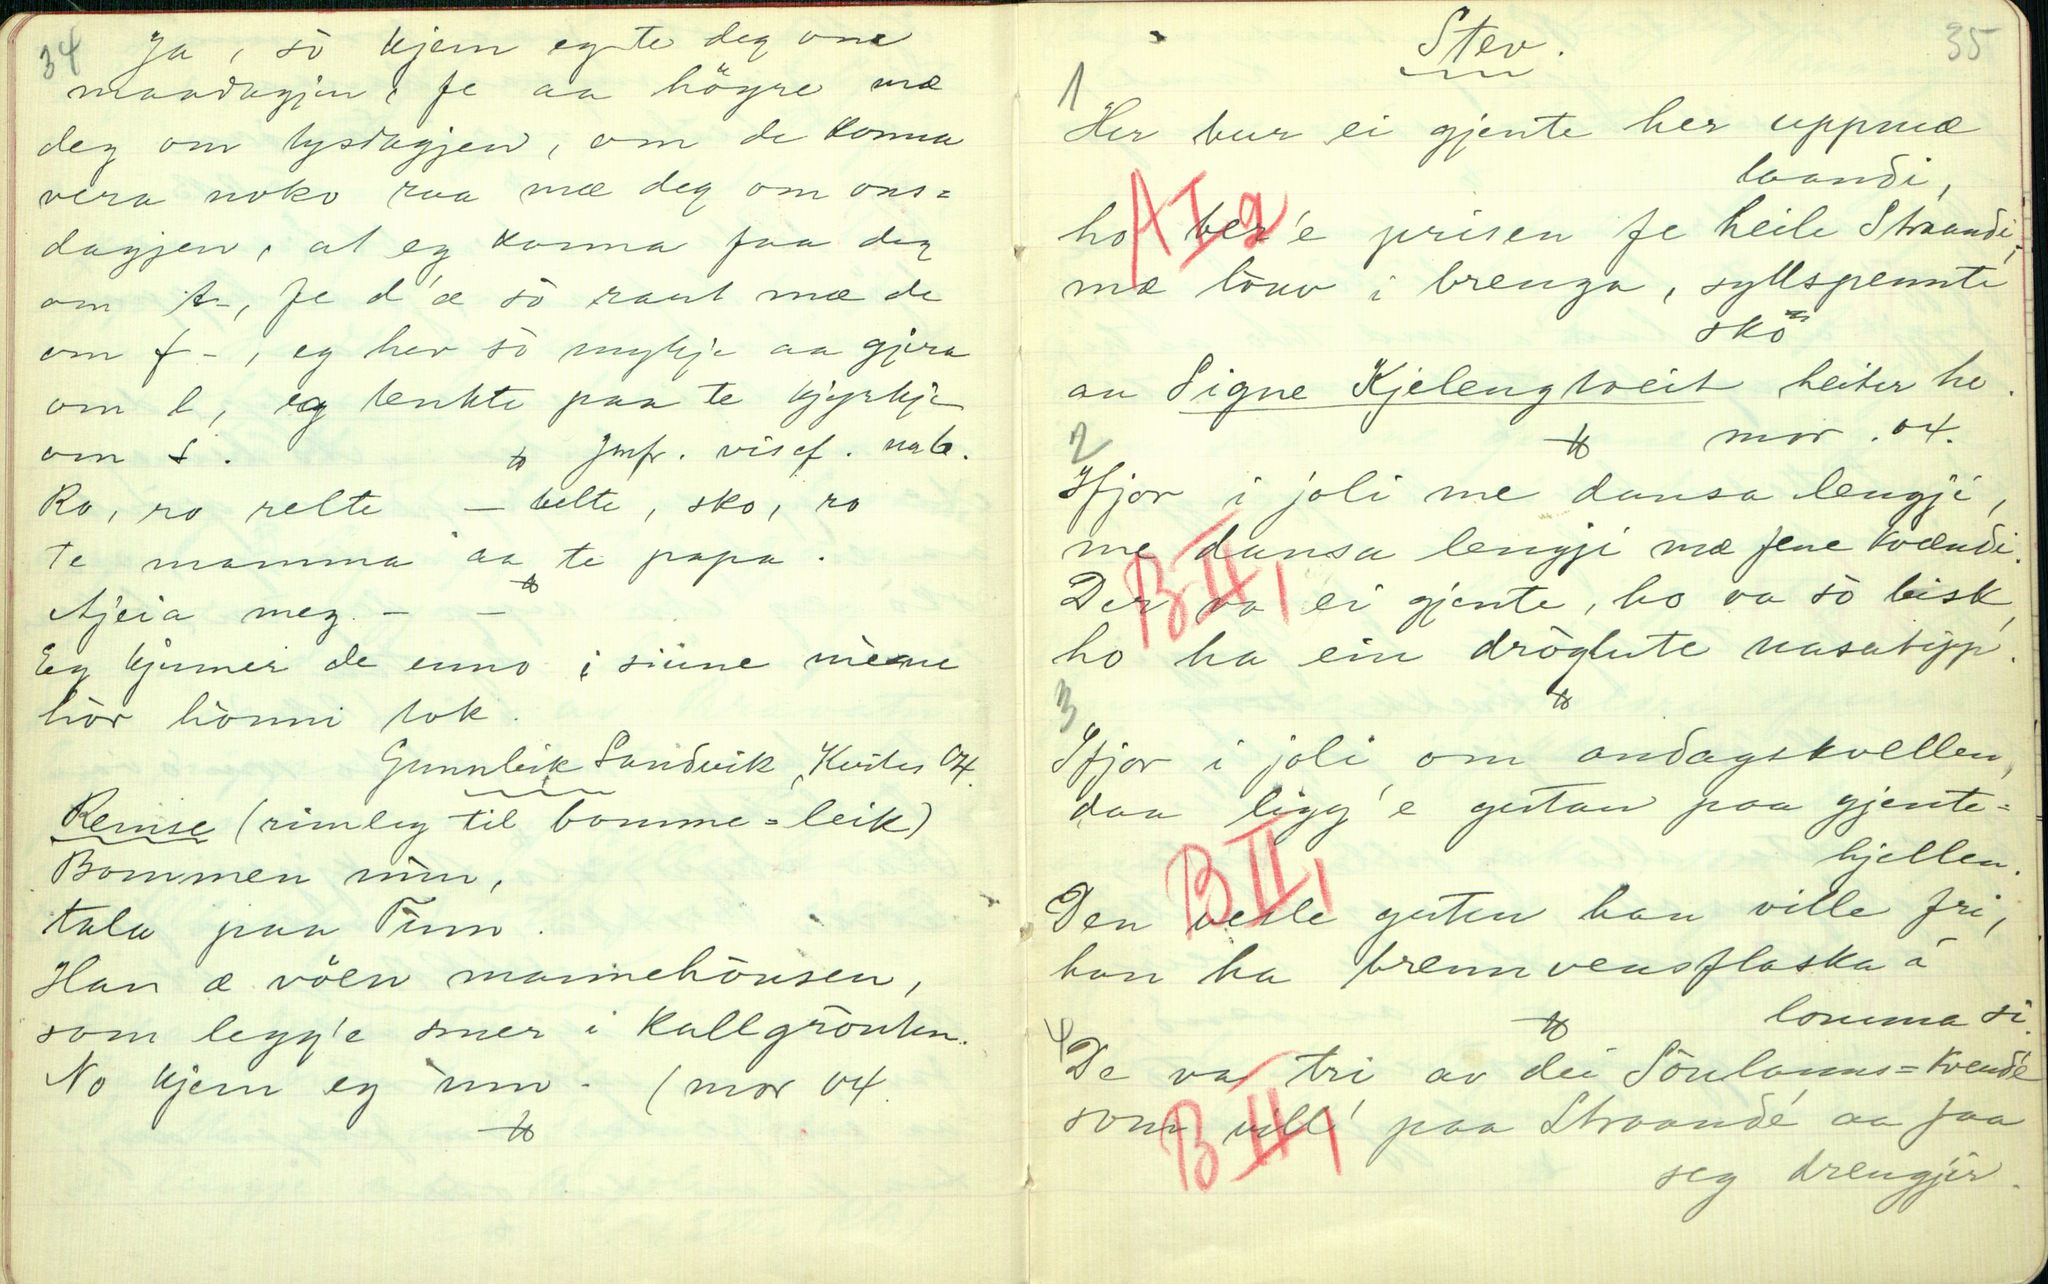 34
Ja, sò kjem eg te deg om
maandagjen, fe aa högre mæ
deg om tysdagjen, om de konna
vera noko raa mæ deg om ons=
dagjen, at eg konna faa deg
om t-, fe d'æ sò raut mæ de
om f-, eg hev sò mykje aa gjera
om l, eg tenkte paa te kjyrkje
om s. Jmfr. visef.
Ro, ro relte — belte, sko, ro
te mamma aa te papa.
Ajeia meg. — —
Eg kjenner de enno i sinne mème
hòr hònni tok.
Gunnleik Sandvik, Kvites 04.
Remse (rimleg til bomme=leik)
Bommen mìn,
tala paa Tinn.
Han æ vöen mannehònsen,
som legg'e smer i kallgròuten.
No kjem eg ìnn. (mor 04.
35
Stev.
1
Her bur ei gjente her uppmæ
laandi,
ho ber'e prisen fe heile Straandi,
AI a
mæ lòuv i brenga, syllspennte
skò
au Signe Kjelengtveit heiter ho.
mor. 04.
2
Ifjor i joli me dansa lengji,
me dansa lengji mæ fene kvændi.
B II,
Der va ei gjente, ho va sò bisk,
ho ha ein dròglute nasatipp.
3
Ifjor i joli om andagskvellen,
daa ligg'e gutan paa gjente=
hjellen.
B II,
Den vesle guten han ville fri,
han ha brennvensflaska á
lomma si.
4
De va tri av dei Sòulanns=kvende
som vill' paa Straandé aa faa
B II,
seg drengjir.